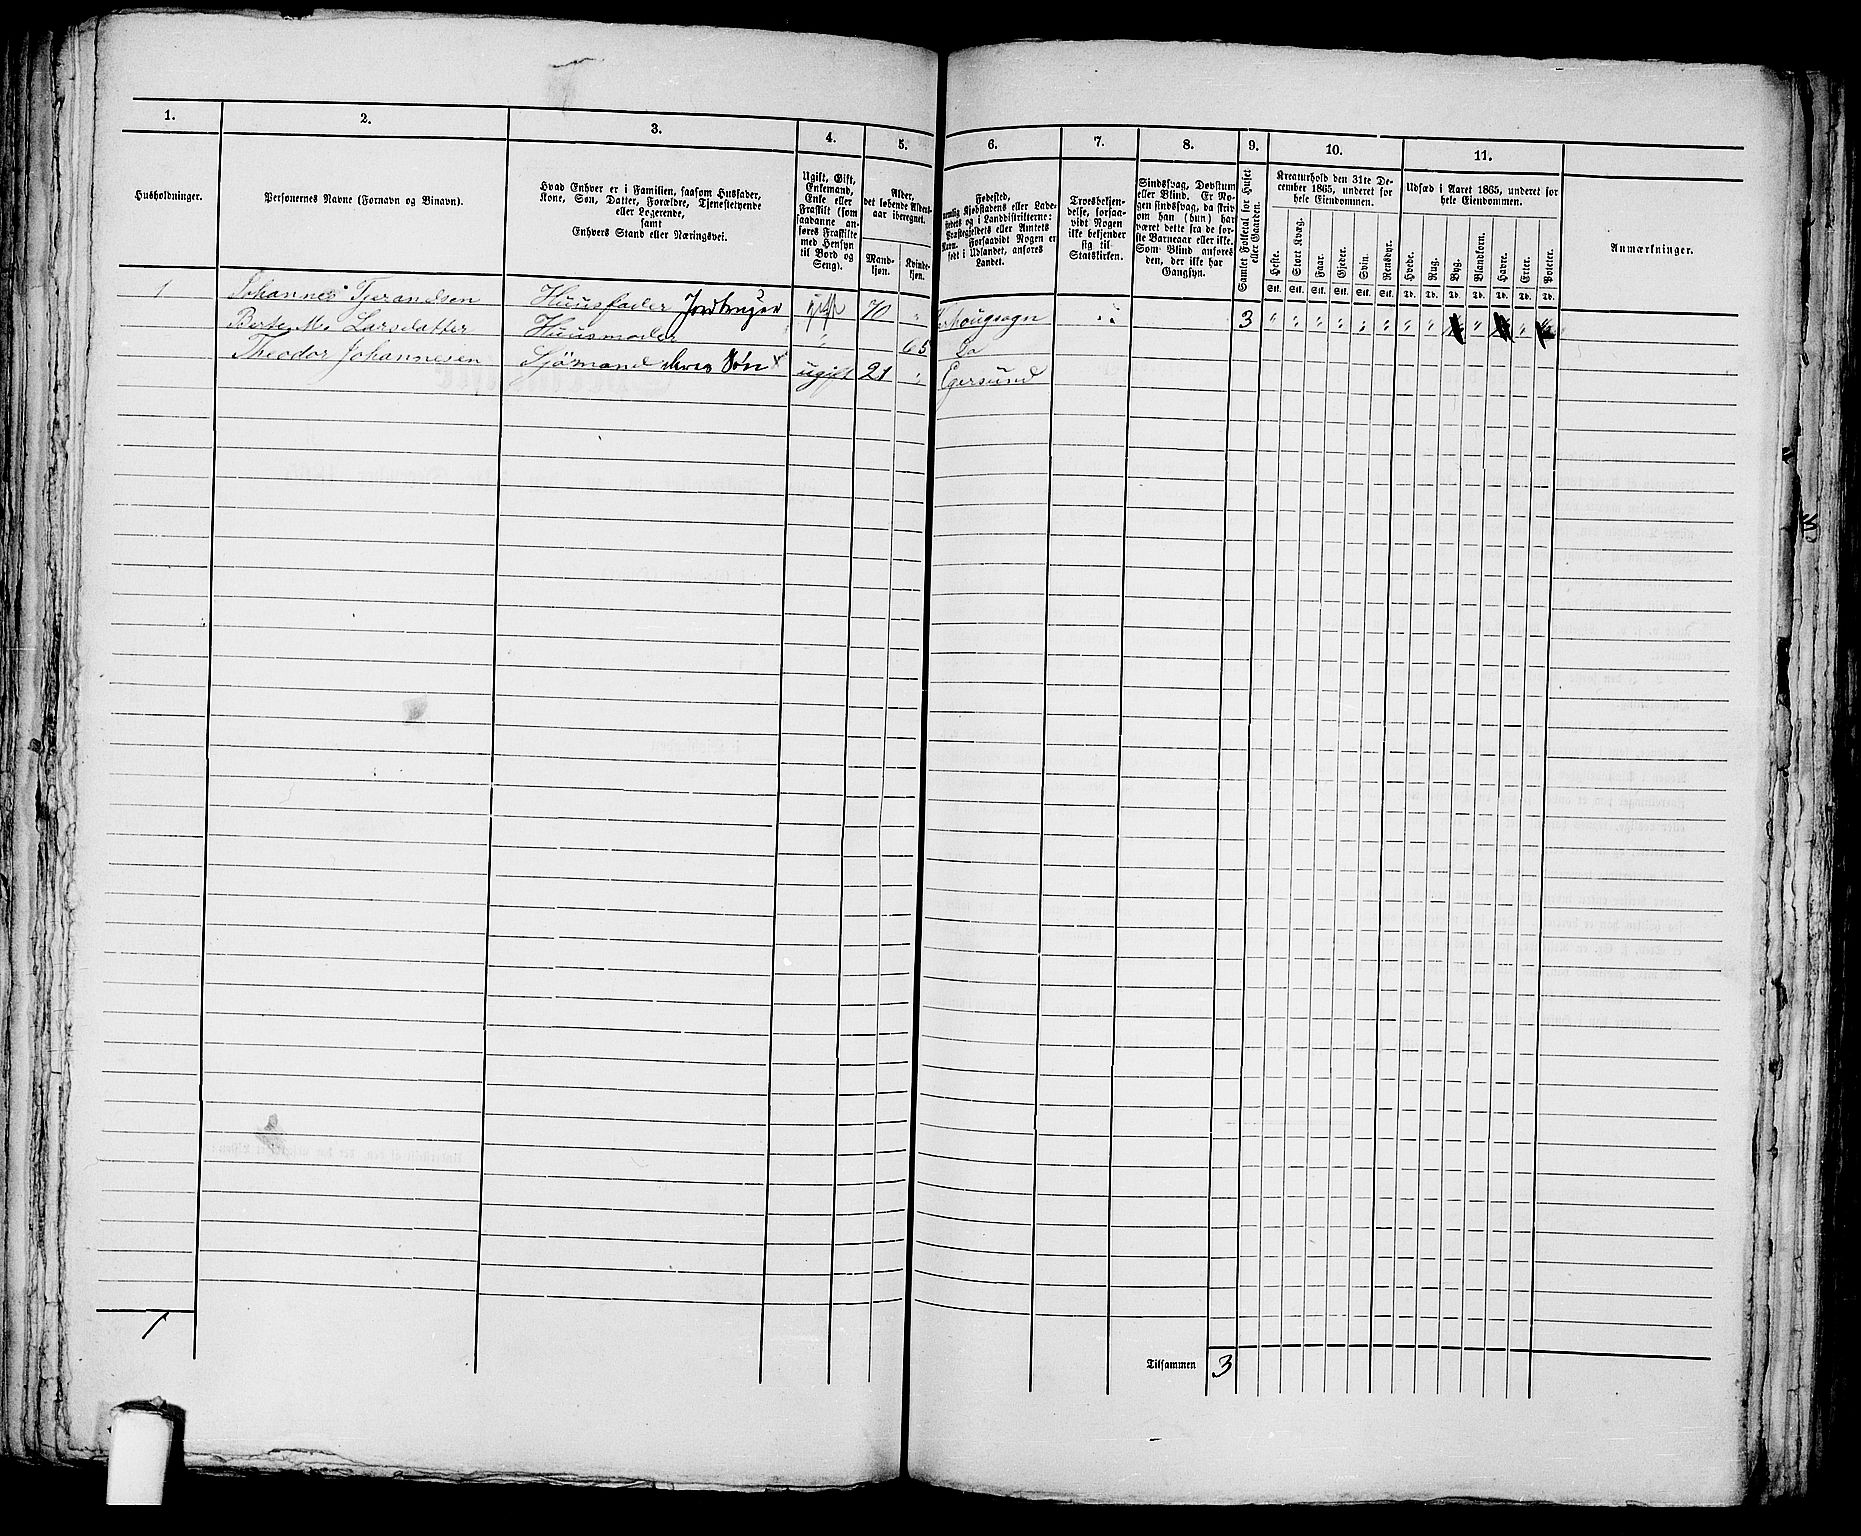 1. 2. 3. 4. 5. 6. 7. 8. 9. 10. 11.
Husholdninger.
Personernes Navne (Fornavn og Binavn).
Hvad Enhver er i Familien, saasom Husfader,
Kone, Søn, Datter, Forældre, Tjenestetyende
eller Logerende,
samt
Enhvers Stand eller Næringsvei.
Ugift, Gift,
Enkemand,
Enke eller
Fraskilt (som
saadanne an-
føres Fraskilte
med Hensyn
til Bord og
Seng).
Alder,
det løbende Alders-
aar iberegnet.
Mand-
kjøn.
Kvinde-
kjøn.
Fødested,
nemlig Kjøbstadens eller Lade-
stedets og i Landdistrikterne:
Præstegjeldets eller Amtets
Navn. Forsaavidt Nogen er
født i Udlandet, anføres
Landet.
Troesbekjen-
delse, forsaa-
vidt Nogen
ikke bekjender
sig til
Statskirken.
Sindssvag, Døvstum
eller Blind. Er No-
gen sindssvag, da skriv
om han (hun) har
været dette fra de før-
ste Barneaar eller ikke.
Som Blind anføres
den, der ikke har
Gangsyn.
Samlet Folketal for Huset
eller Gaarden.
Kreaturhold den 31te De-
cember 1865, underet for
hele Eiendommen.
Heste. Stort Kvæg. Faar. Gjeder. Svin. Rensdyr.
Stk. Stk. Stk. Stk. Stk. Stk.
Udsæd i Aaret 1865, underet for
hele Eiendommen.
Hvede. Rug. Byg. Blandkorn. Havre. Erter. Poteter.
Td. Td. Td. Td. Td. Td. Td.
Anmærkninger.
1 Johannes Tjerandsen Huusfader Jordbruger gift 70 " Sougsogn 3 " " " " " " " " " "
Berte Ma Larsdatter Huusmoder " 65 Do
Theodor Johannesen Sjømand deres Søn ugift 21 " Egersund
1
Tilsammen 3